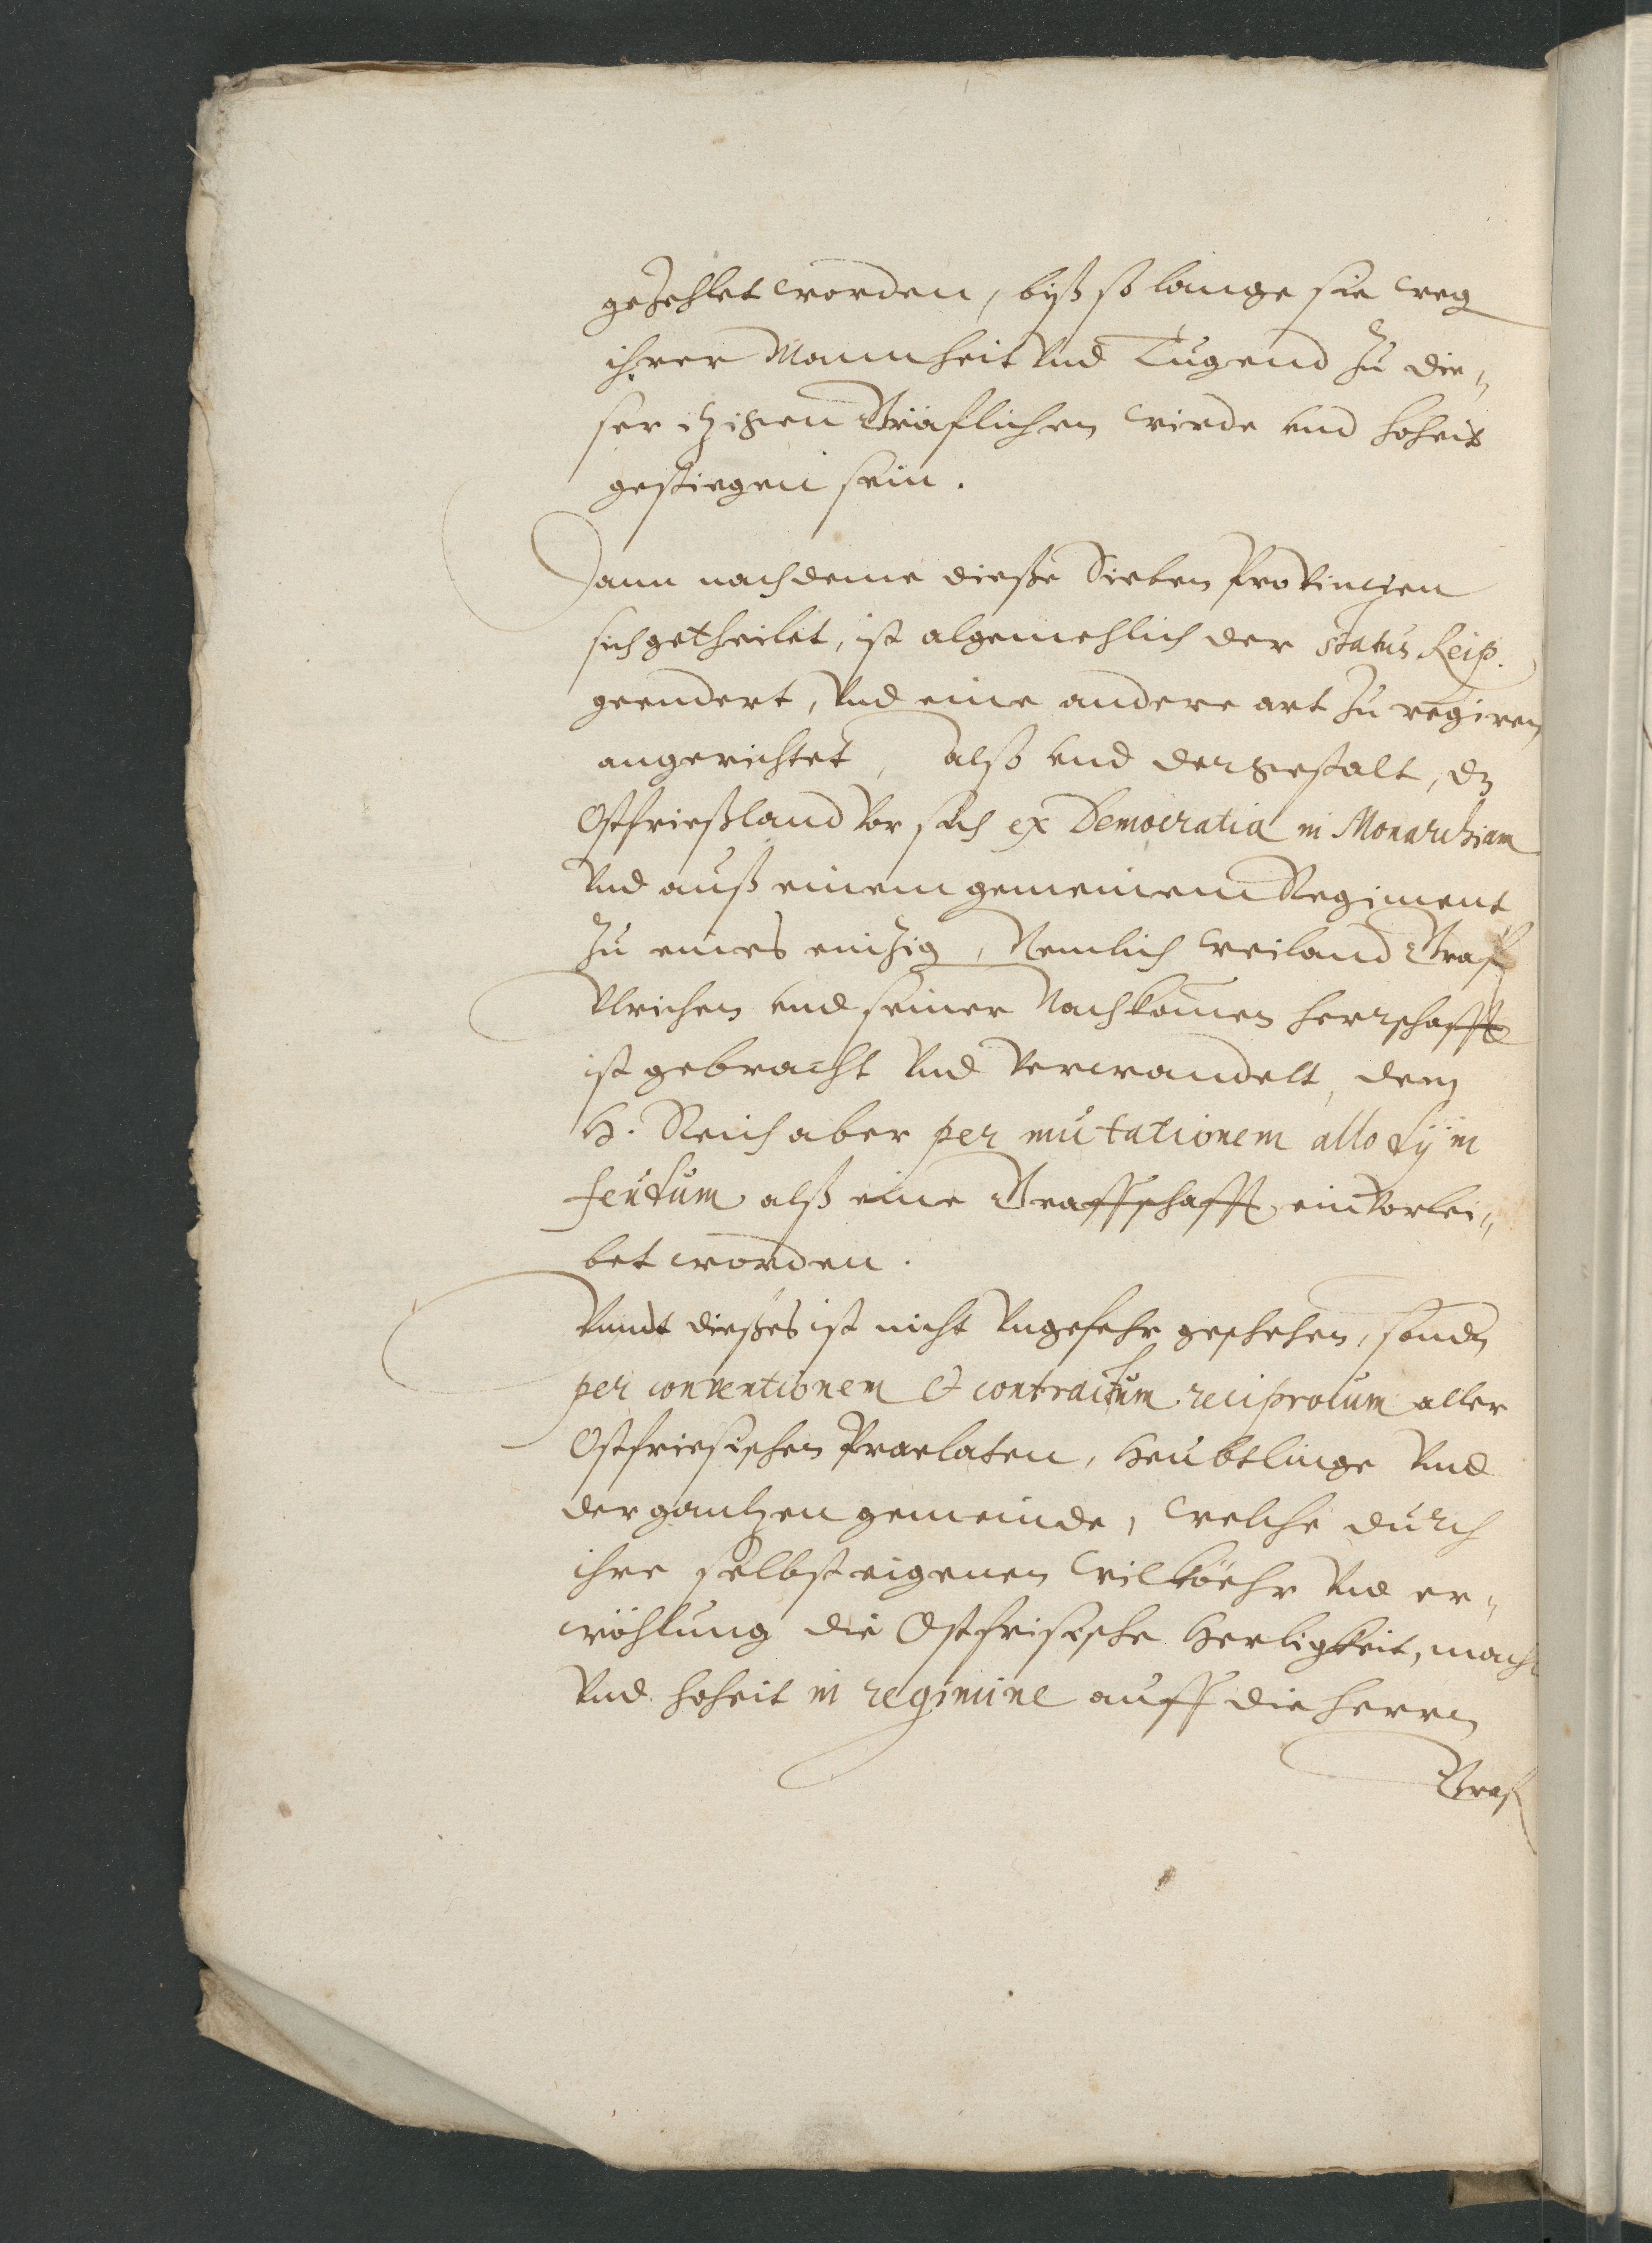 gezehlet worden, biß so lange sie weg
ihrer Mannheit vnd Tugend zu die-
ser itzigen Gräflichen wirde vnd hoheit
gestiegen sein.
Dann nachdeme dieße Sieben Provincien
sich getheilet, ist algemehlich der status Reip.
geendert, vnd eine andere art zu regiren
angerichtet, also vnd dergestalt, dz
Ostfrießland vor sich ex Democratia in Monarchiam
vnd auß einem gemeinem Regiment
zu eines einzig, Nemlich weiland Graf
Vlrichen vnd seiner Nachkomen herrschafft
ist gebracht vnd verwandelt, dem
H. Reich aber per mutationem allodij in
feudum alß eine Graffschafft einvorlei-
bet worden.
Vnndt dießes ist nicht vngefehr geschehen, sondn
per conventionem & contractum reciprocum aller
Ostfriesischen Praelaten, Heubtlinge vnd
der gantzen gemeinde, welche durch
ihre selbst eigenen wilköhr vnd er-
wöhlung die Ostfrisische Herligkeit, macht
vnd hoheit in regimine auff die herrn
Graf